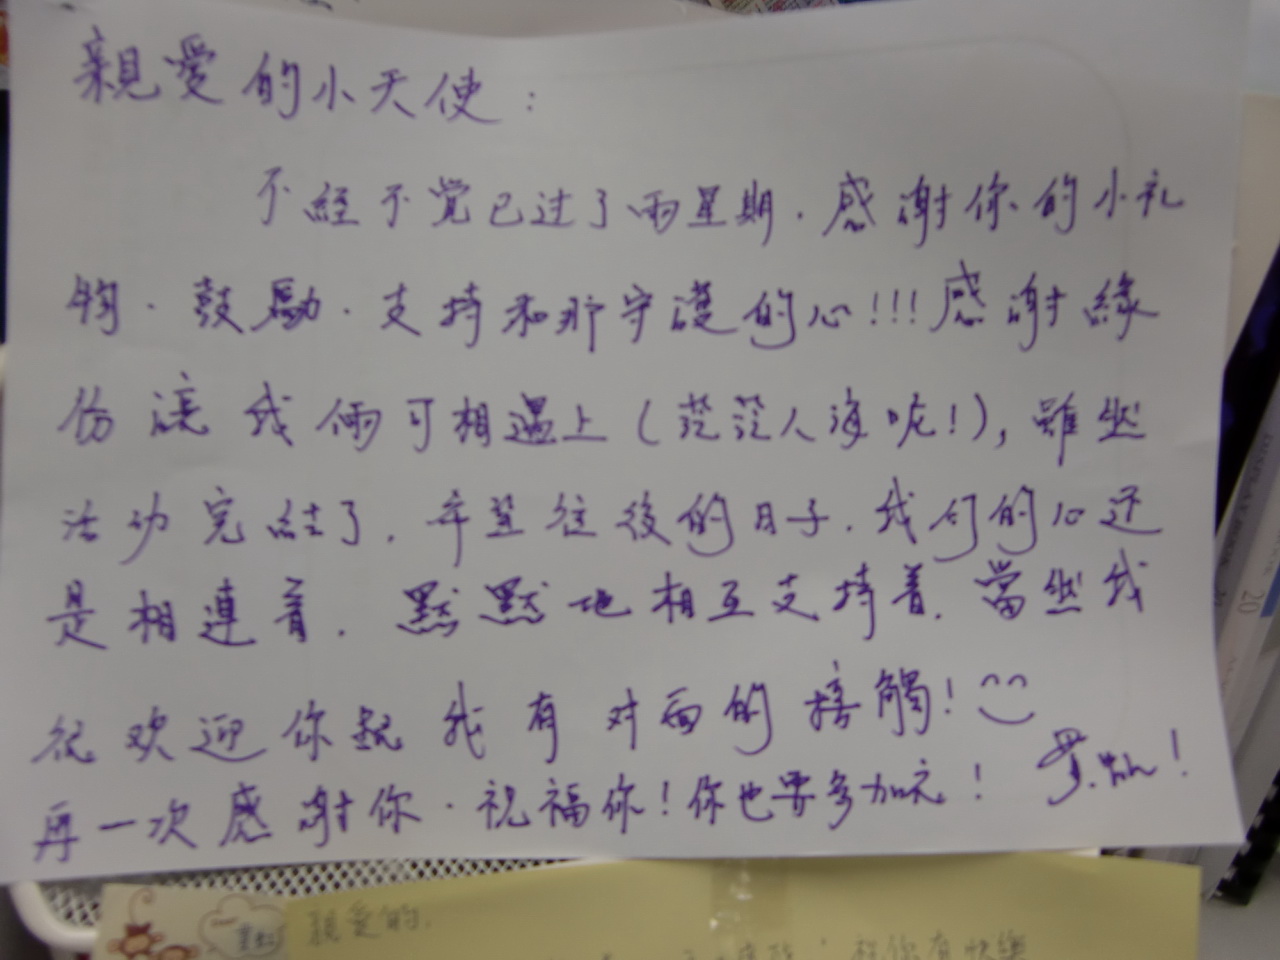 親愛的小天使：
不經不覺已过了兩星期．感謝你的小礼
物．鼓勵．支持和那守護的心!!!感謝緣
份讓我倆可相遇上(茫茫人海呢!)，雖然
活动完結了．希望往後的日子．我们的心还
是相連着．默默地相互支持着．當然我
很欢迎你跟我有对面的接觸!
再一次感謝你．祝福你!你也要多加油!
親愛的．
祝你有快樂